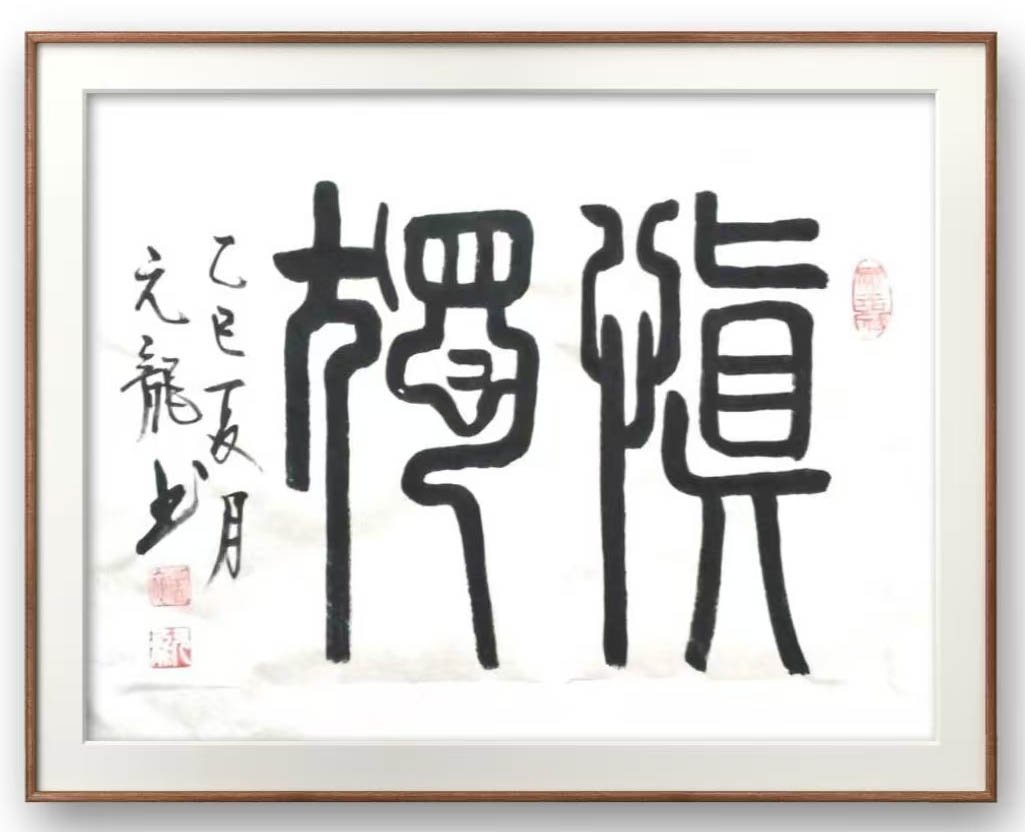 慎獨
乙巳夏月
元龍书